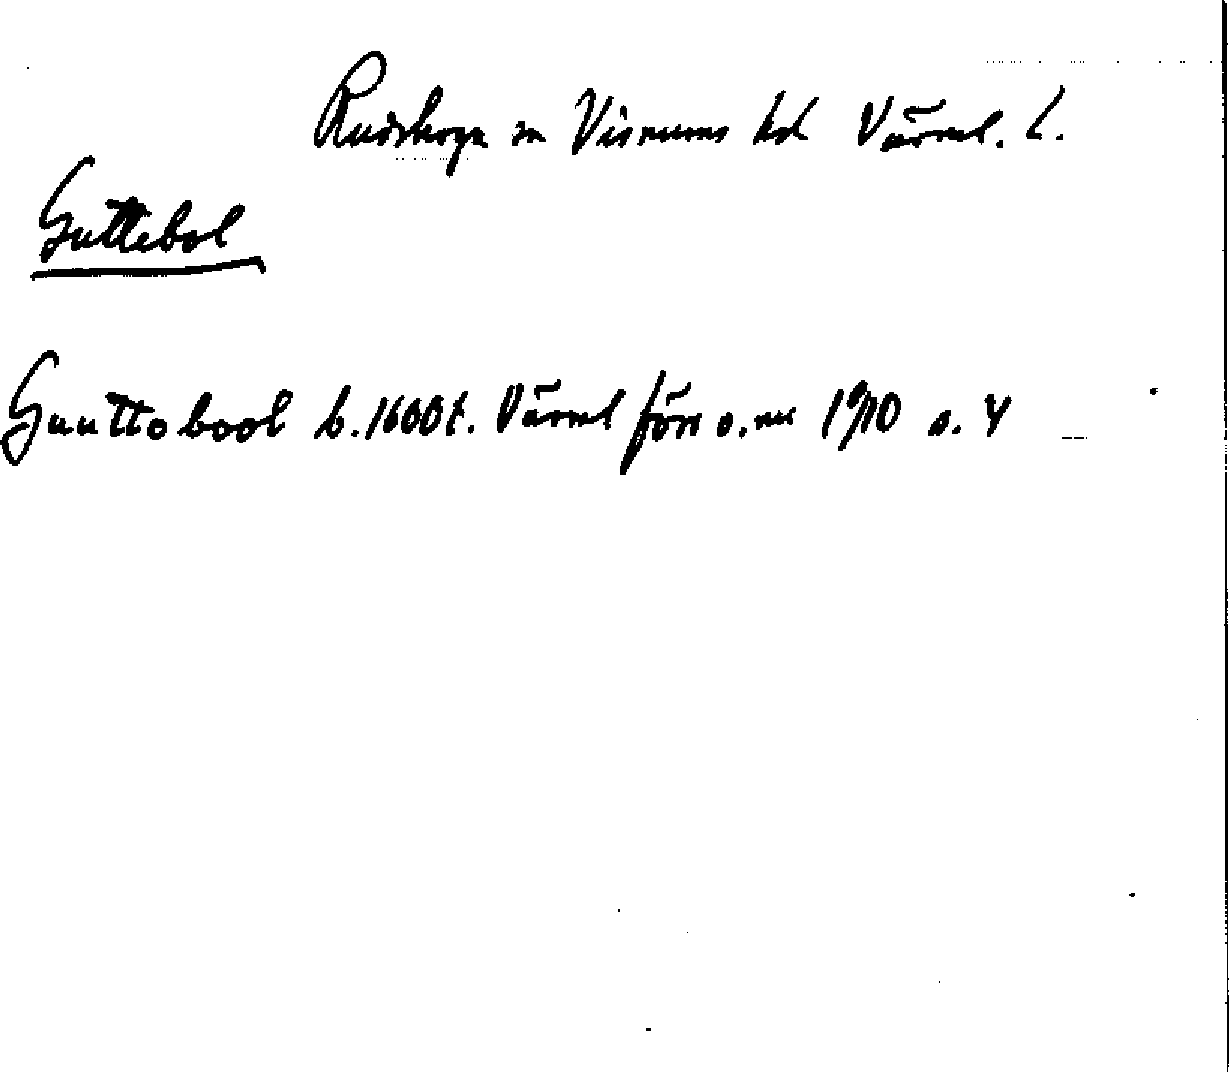 Rudskoga sn Visnums hd Värml. L.
Guttebol
Gunttobool b. 1600t. Värml förr o. nu 1910 s. 4